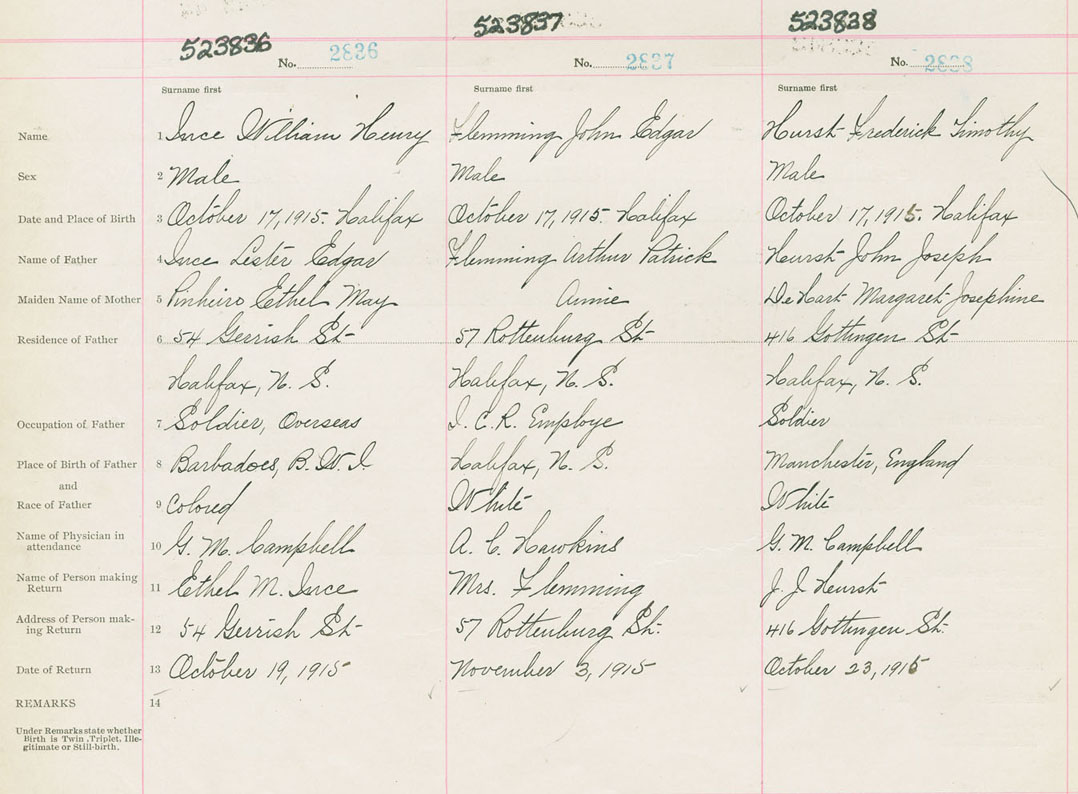 523836 523837 523838
No. 2836 No. 2837 No. 2838
Surname first Surname first Surname first
Name 1 Ince William Henry Flemming John Edgar Hurst Frederick Timothy
Sex 2 Male Male Male
Date and Place of Birth 3 October 17, 1915. Halifax October 17, 1915 Halifax October 17, 1915. Halifax
Name of Father 4 Ince Lester Edgar Flemming Arthur Patrick Hurst John Joseph
Maiden Name of Mother 5 Pinheiro Ethel May Annie DeHart Margaret Josephine
Residence of Father 6 54 Gerrish St 57 Rottenburg St 416 Gottingen St
Halifax, N. S. Halifax, N. S. Halifax, N. S.
Occupation of Father 7 Soldier, Overseas I. C. R. Employe Soldier
Place of Birth of Father 8 Barbadoes, B. W. I Halifax, N. S. Manchester, England
and
Race of Father 9 Colored White White
Name of Physician in
attendance 10 G. M. Campbell A. C. Hawkins G. M. Campbell
Name of Person making
Return 11 Ethel M. Ince Mrs. Flemming J. J. Hurst
Address of Person mak-
ing Return 12 54 Gerrish St 57 Rottenburg St. 416 Gottingen St.
Date of Return 13 October 19, 1915 November 3, 1915 October 23, 1915
REMARKS 14
Under Remarks state whether
Birth is Twin, Triplet, Ille-
gitimate or Still-birth.